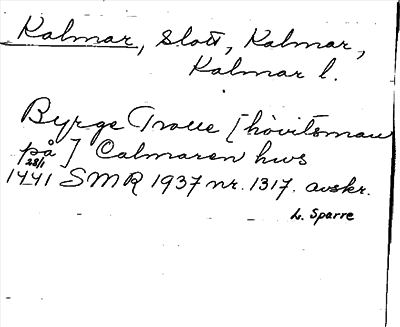 Kalmar, Slott, Kalmar,
Kalmar l.
Byrge Trolle [hövitsman
på] Calmaren hws
28/1
1441 SMR 1937 nr. 1317. avskr.
L. Sparre